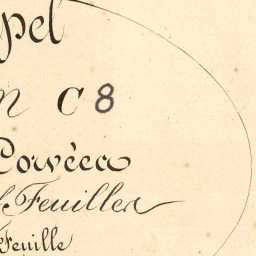 pel
n C8
Corvéea
Feuillea
Feuille